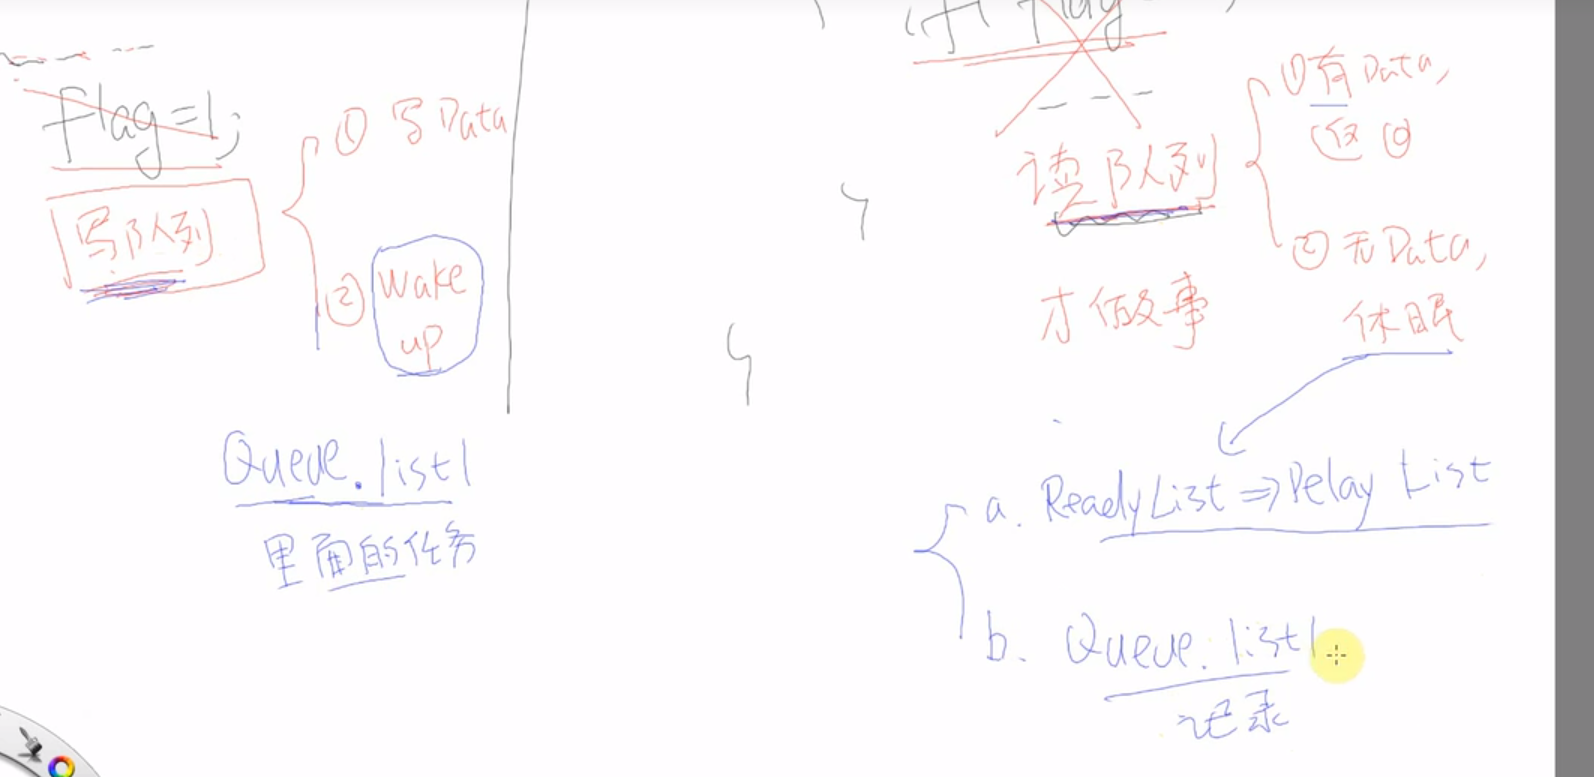 flag=1;
写队列
① 写Data
② wake
up
Queue.list1
里面的任务
读队列
才做事
① 有Data,
返回
② 无Data,
休眠
a. ReadyList ⇒ Delay List
b. Queue.list1
记录